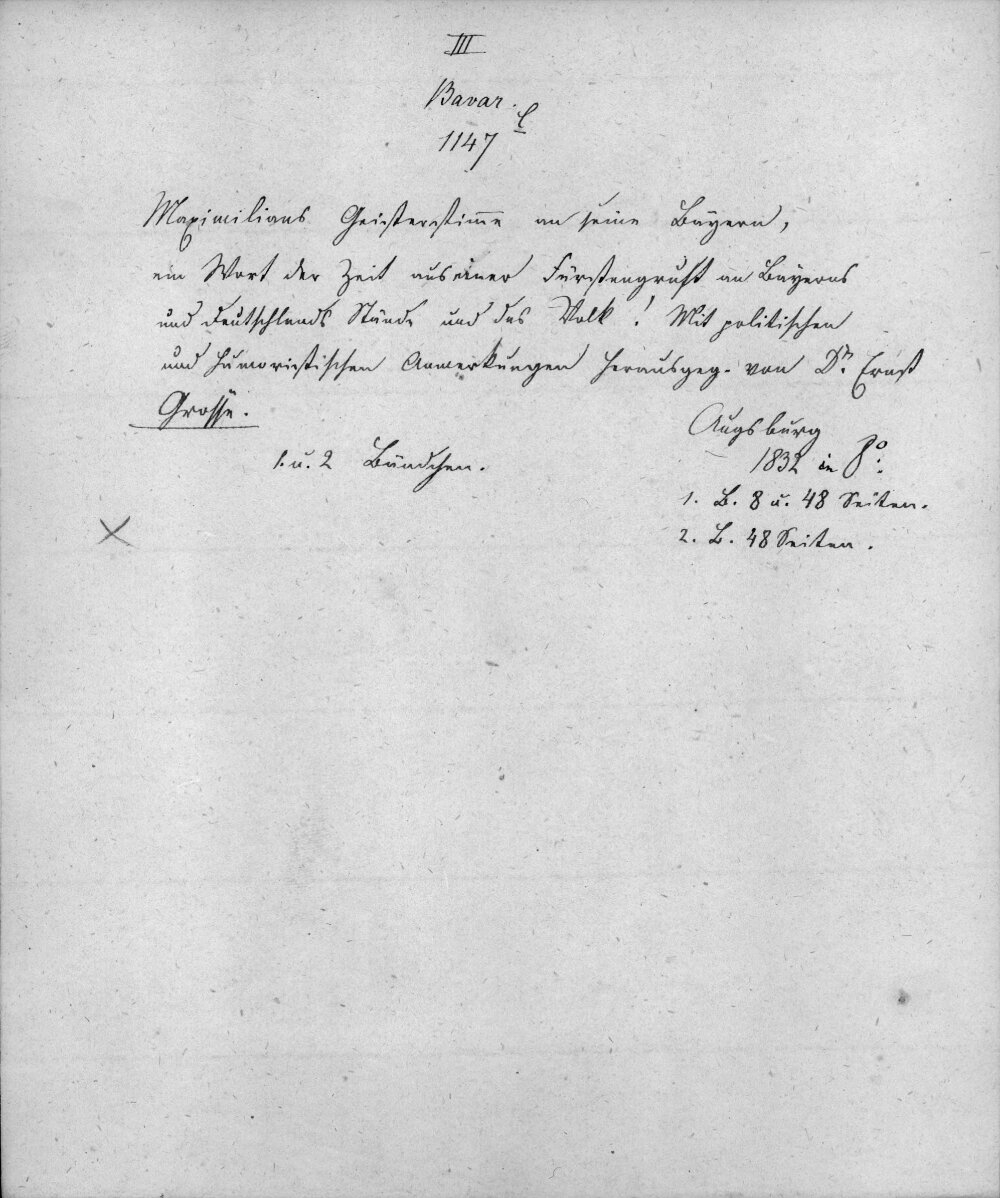 III
Bavar. l
1147
Maximilians Geisterstimme an seine Bayern,
ein Wort der Zeit aus einer Fürstengruft an Bayerns
und Deutschlands Stände und das Volk! Mit politischen
und humoristischen Anmerkungen herausgeg. von Dr. Ernst
Grosse.
Augsburg
1. u. 2 Bändchen.
1832 in 8°.
1. B. 8 u. 48 Seiten.
2. B. 48 Seiten.